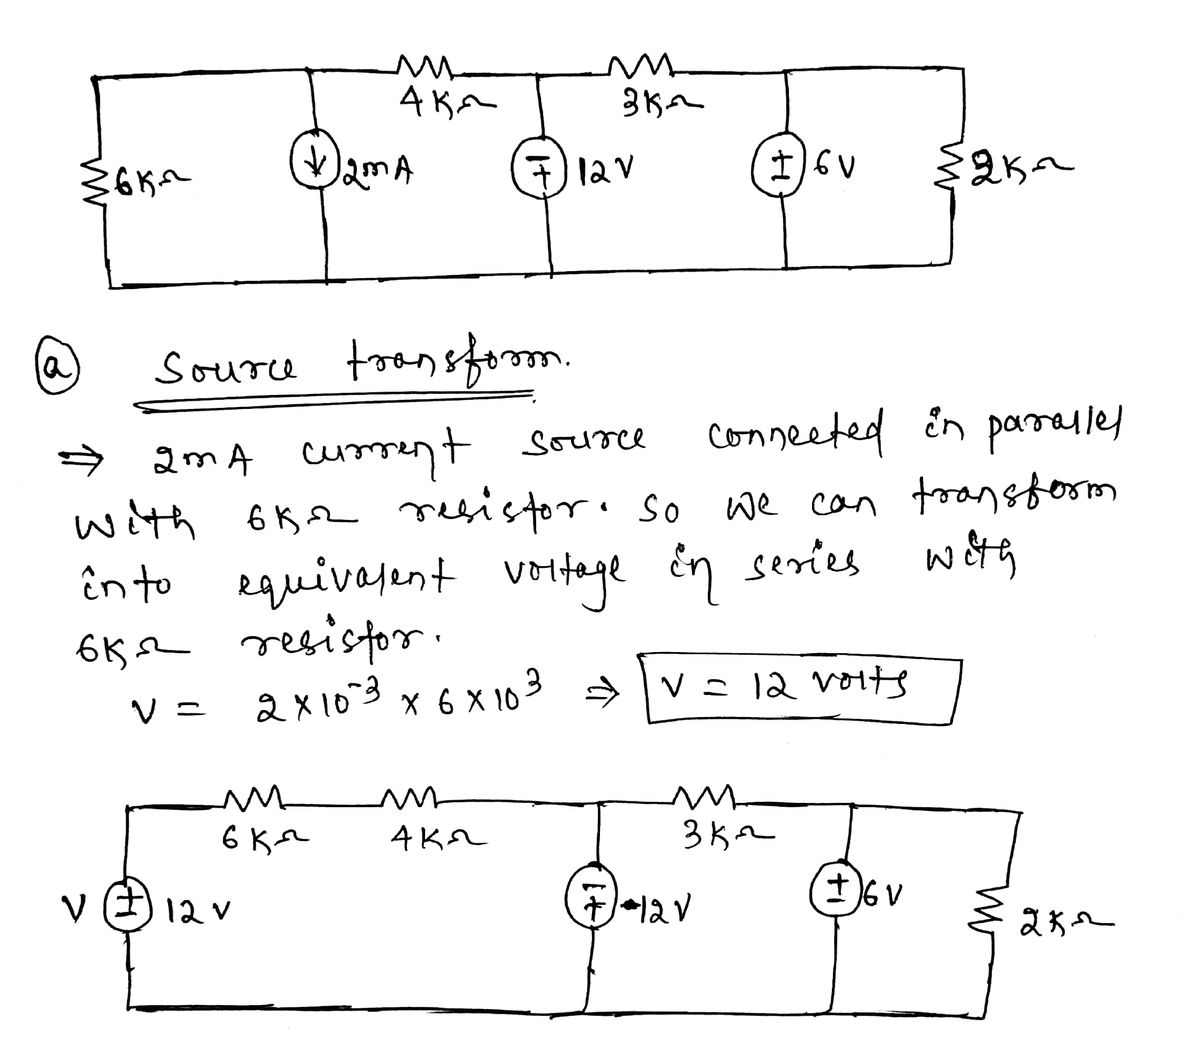 4KΩ 3KΩ
6KΩ 2mA 12V 6V 2KΩ
(a) Source transform.
⇒ 2mA current source connected in parallel
with 6KΩ resistor. So we can transform
into equivalent voltage in series with
6KΩ resistor.
V = 2×10⁻³ × 6×10³ ⇒ V = 12 volts
6KΩ 4KΩ 3KΩ
V 12V 12V 6V 2KΩ